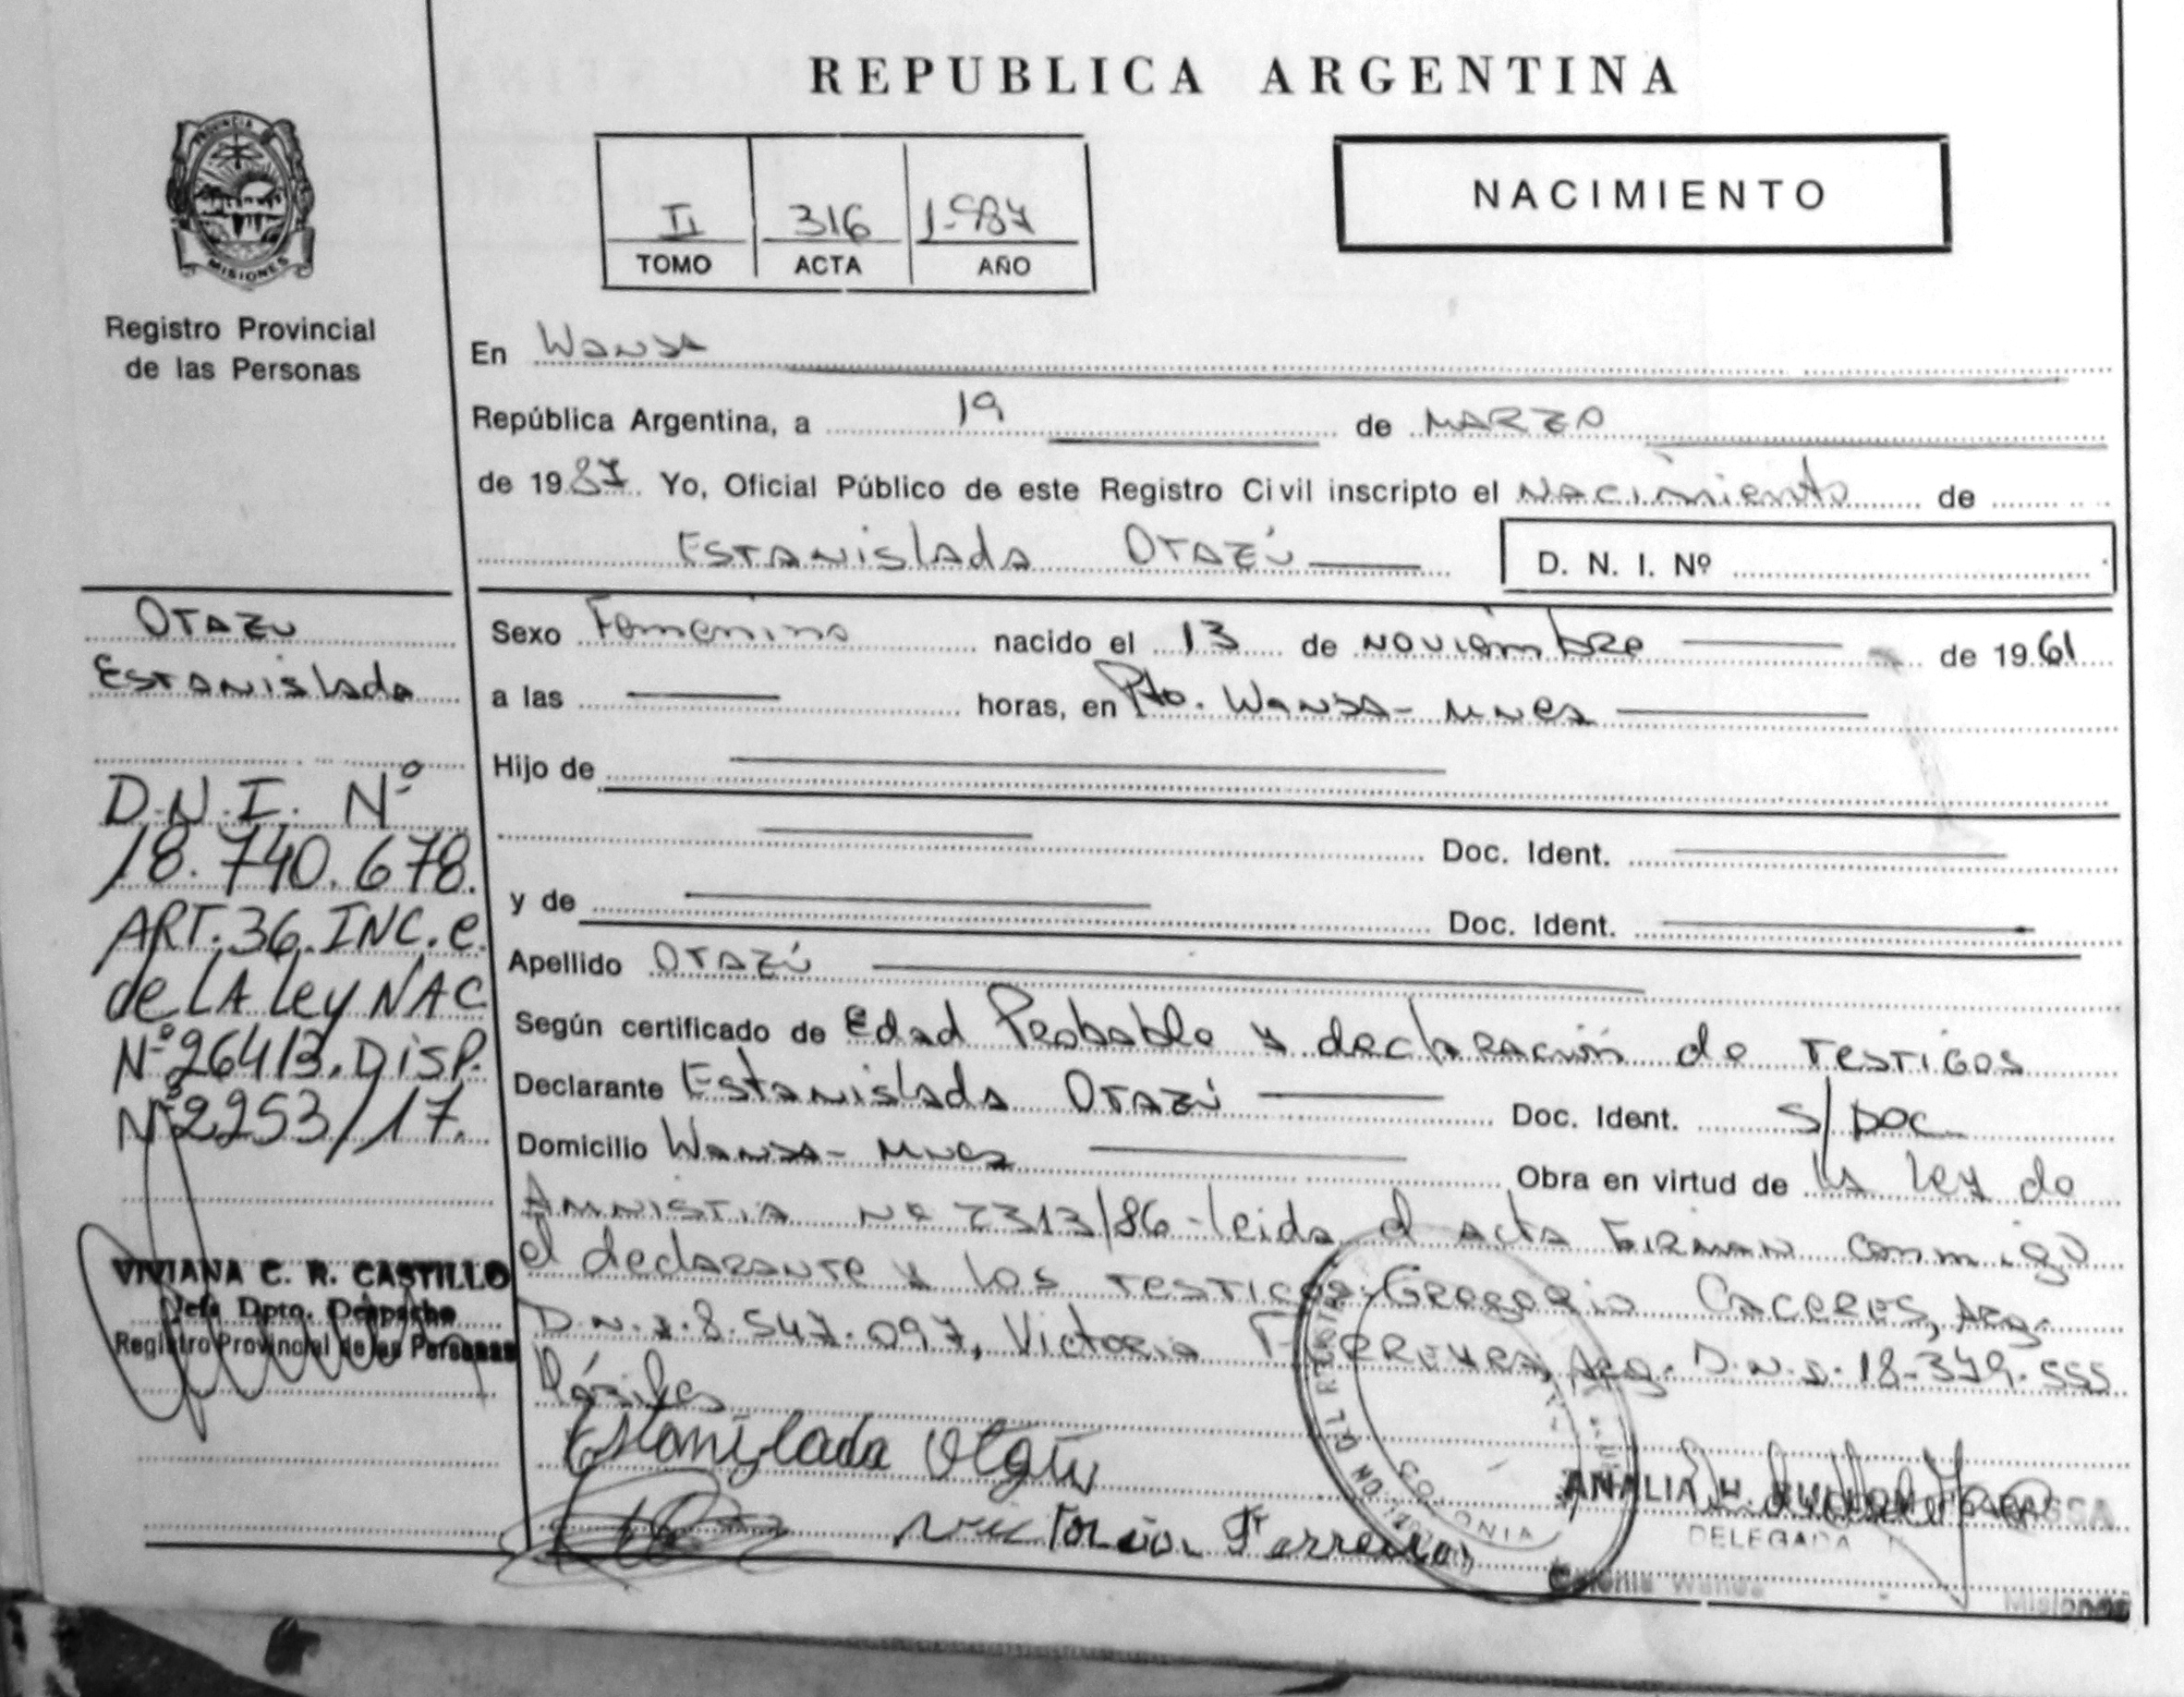 REPUBLICA ARGENTINA
PROVINCIA DE
MISIONES
Registro Provincial
de las Personas
II 316 1.987
TOMO ACTA AÑO
NACIMIENTO
En Wanda
República Argentina, a 19 de MARZO
de 1987. Yo, Oficial Público de este Registro Civil inscripto el Nacimiento de
Estanislada Otazú
D. N. I. Nº
Otazu
Estanislada
D.N.I. Nº
18.740.678.
ART. 36. INC. c.
de LA Ley NAC
Nº 26413. DISP.
Nº 2253/17.
VIVIANA C. R. CASTILLO
Jefa Dpto. Despacho
Registro Provincial de las Personas
Sexo Femenino nacido el 13 de Noviembre de 1961
a las horas, en Pto. Wanda - Mnes
Hijo de
Doc. Ident.
y de Doc. Ident.
Apellido Otazú
Según certificado de Edad Probable y declaración de testigos
Declarante Estanislada Otazú Doc. Ident. S/Doc
Domicilio Wanda - Mnes Obra en virtud de la Ley de
Amnistia Nº 2313/86 - leida el acta firman conmigo
el declarante y los testigos: Gregorio Caceres, Arg.
D.N.I. 8.547.097, Victoria Ferreyra, Arg. D.N.I. 18.349.555
Hábiles
Estanislada Otazu
Victoria Ferreira
COLONIA
ANALIA H.
DELEGADA
Colonia Wanda Misiones